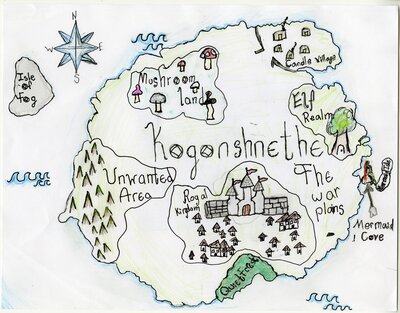 N
W
E
S
Isle
of
Fog
Mushroom
land
Candle Village
Elf
Realm
Kogonshnethe
Unwanted
Area
Royal
Kingdom
The
war
plans
Mermaid
Cove